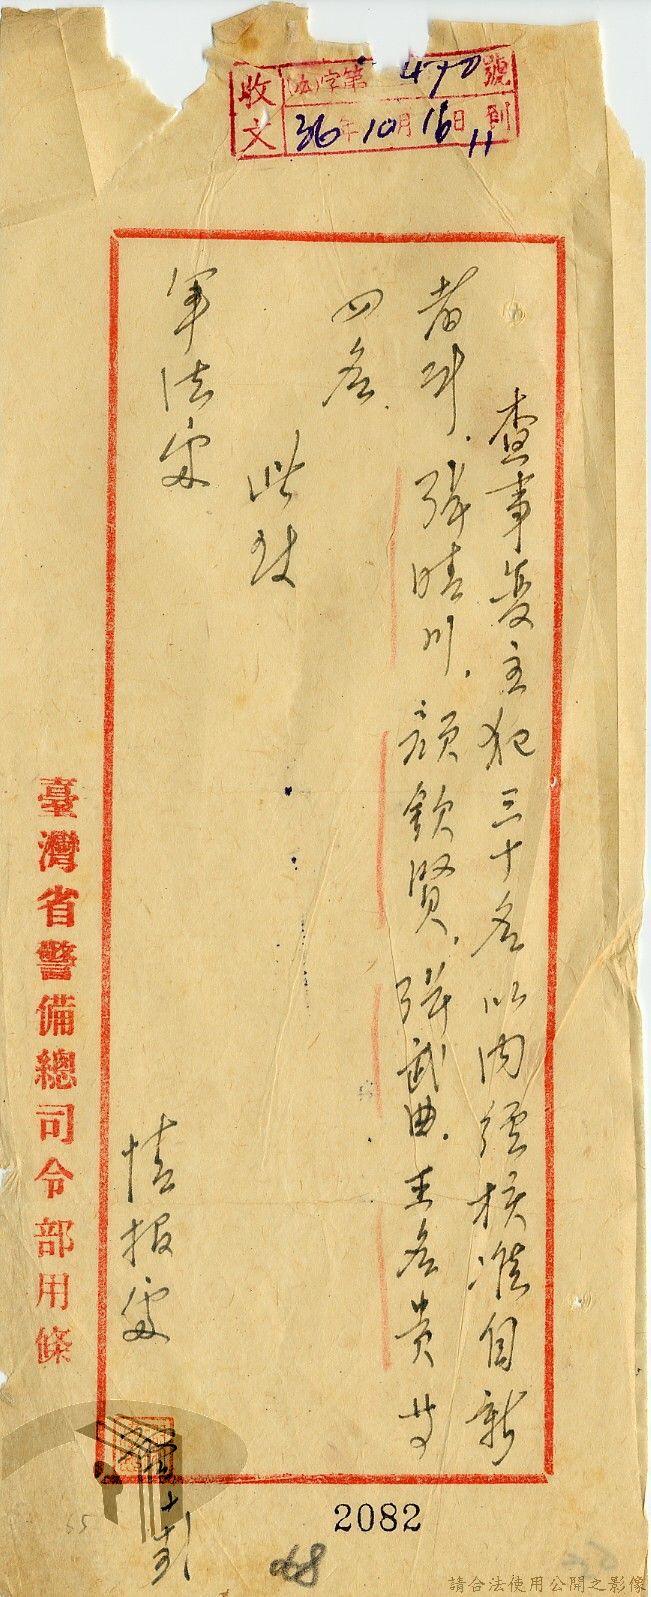 收文 (法)字第470號
36年10月16日 到
11
查事變主犯三十名以內經核准自新
者計、張晴川、顏欽賢、張武曲、王名貴等
四名、
此致
軍法處
情報處
十、
臺灣省警備總司令部用條
2082
48
65
請合法使用公開之影像